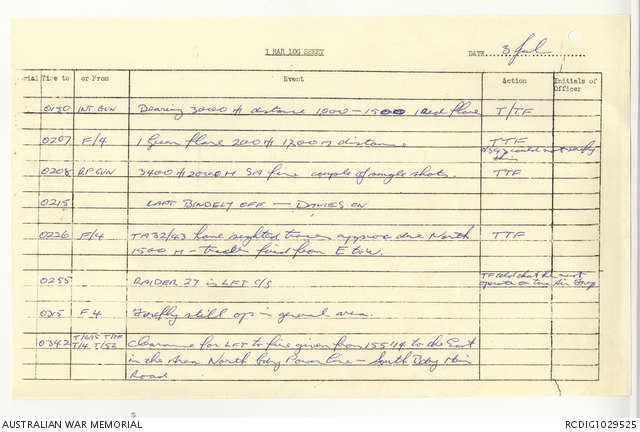 1 RAR LOG SHEET
DATE 3 Jul
Serial Time to or From Event Action Initials of Officer
0130 INT GUN Bearing 3000 M distance 1000 - 1500 1 Red flare T/TF
0207 F/4 1 Green flare 200 M 1200 M distance TTF
could not verify this
0208 RP GUN 3400 M 2000 M SA fire couple of single shots. TTF
0215 LAST BINDELY OFF — DAVIES ON
0226 F/4 TA32/43 have sighted tracer approx due North TTF
1500 M - tracer fired from E to W.
0255 RAIDER 27 is LFT C/S TF told that he must
operate on Air Freq
F4 Firefly still ops in general area.
0342 Clearance for LFT to fire given from 155 14 to the East
in the Area North bdy Power line - South Bdy Main
Road
AUSTRALIAN WAR MEMORIAL
RCDIG1029525